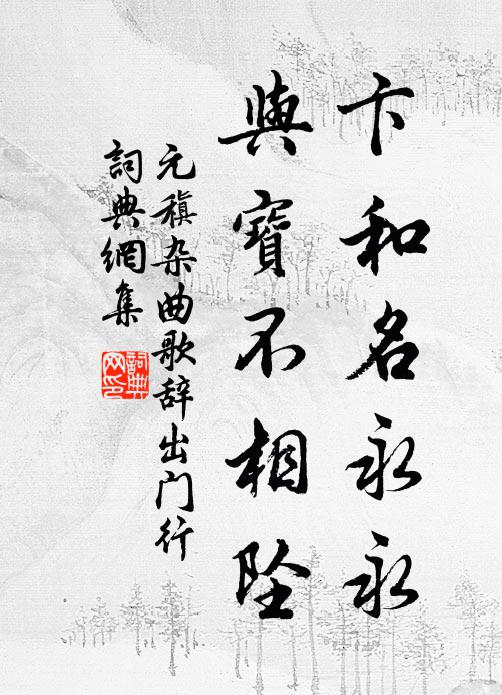 卞和名永永
與寶不相墜
元稹杂曲歌辞出门行
詞典網集
詞典网印